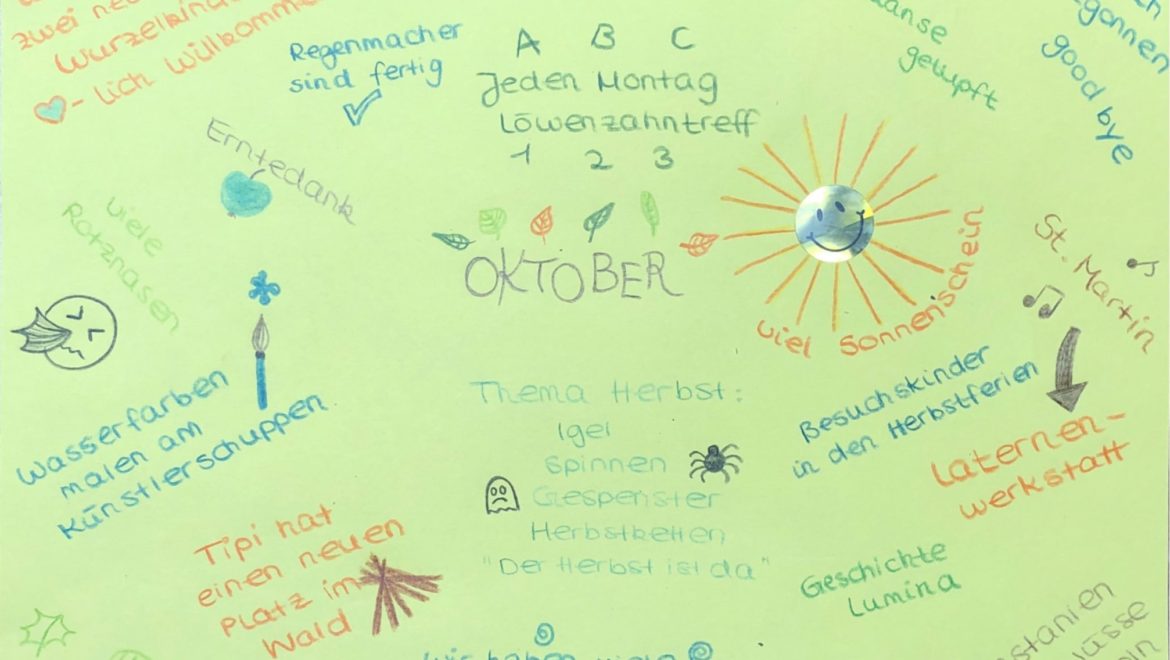 zwei
Wurzelkin
♥-lich willkomm
Regenmacher
sind fertig
A B C
Jeden Montag
Löwenzahntreff
1 2 3
gelupft
gonnen
good bye
Erntedank
viele
Rotznasen
OKTOBER
viel Sonnenschein
St. Martin
Wasserfarben
malen am
Künstlerschuppen
Thema Herbst:
Igel
Spinnen
Gespenster
Herbstketten
"Der Herbst ist da"
Besuchskinder
in den Herbstferien
Laternen-
werkstatt
Tipi hat
einen neuen
Platz im
Wald
Geschichte
Lumina
stanien
üsse